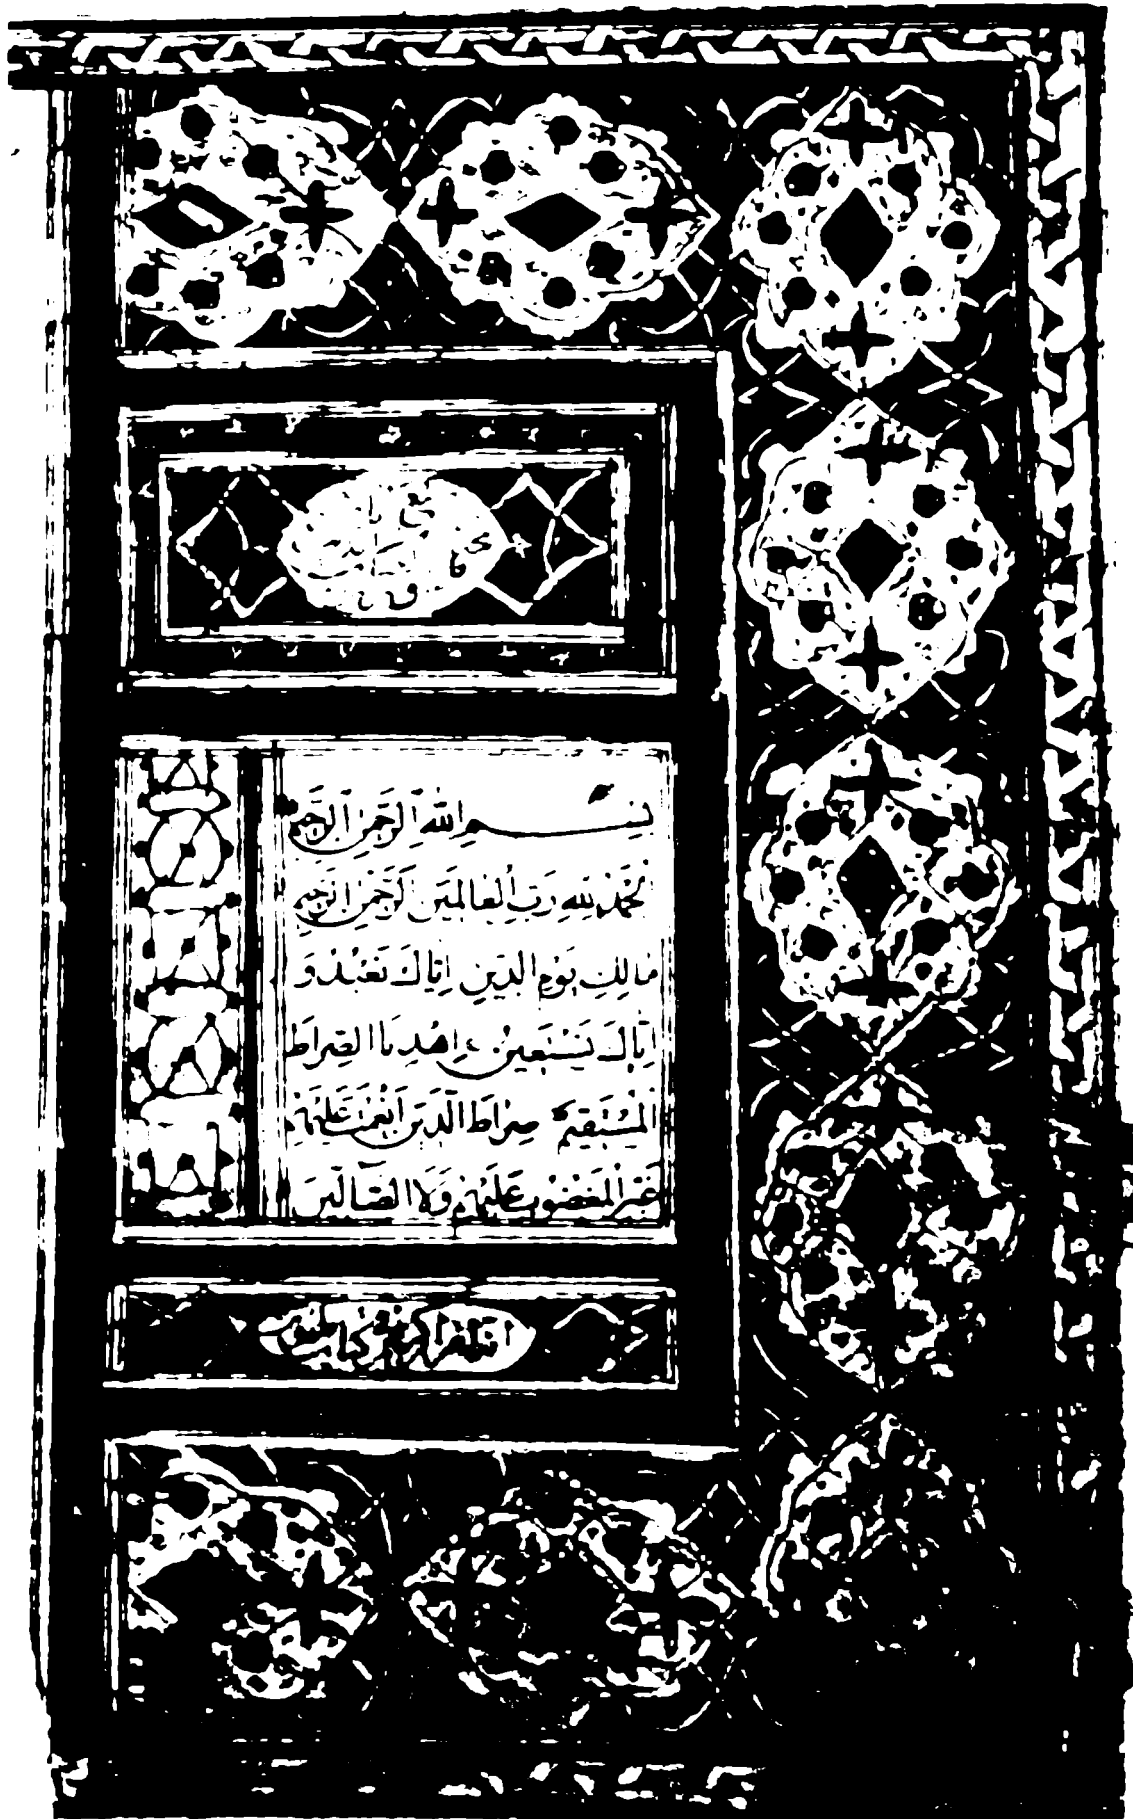 بِسْمِ اللَّهِ الرَّحْمَنِ الرَّحِيمِ
الْحَمْدُ لِلَّهِ رَبِّ الْعَالَمِينَ الرَّحْمَنِ الرَّحِيمِ
مَالِكِ يَوْمِ الدِّينِ إِيَّاكَ نَعْبُدُ وَ
إِيَّاكَ نَسْتَعِينُ اِهْدِنَا الصِّرَاطَ
الْمُسْتَقِيمَ صِرَاطَ الَّذِينَ أَنْعَمْتَ عَلَيْهِمْ
غَيْرِ الْمَغْضُوبِ عَلَيْهِمْ وَلَا الضَّالِّينَ